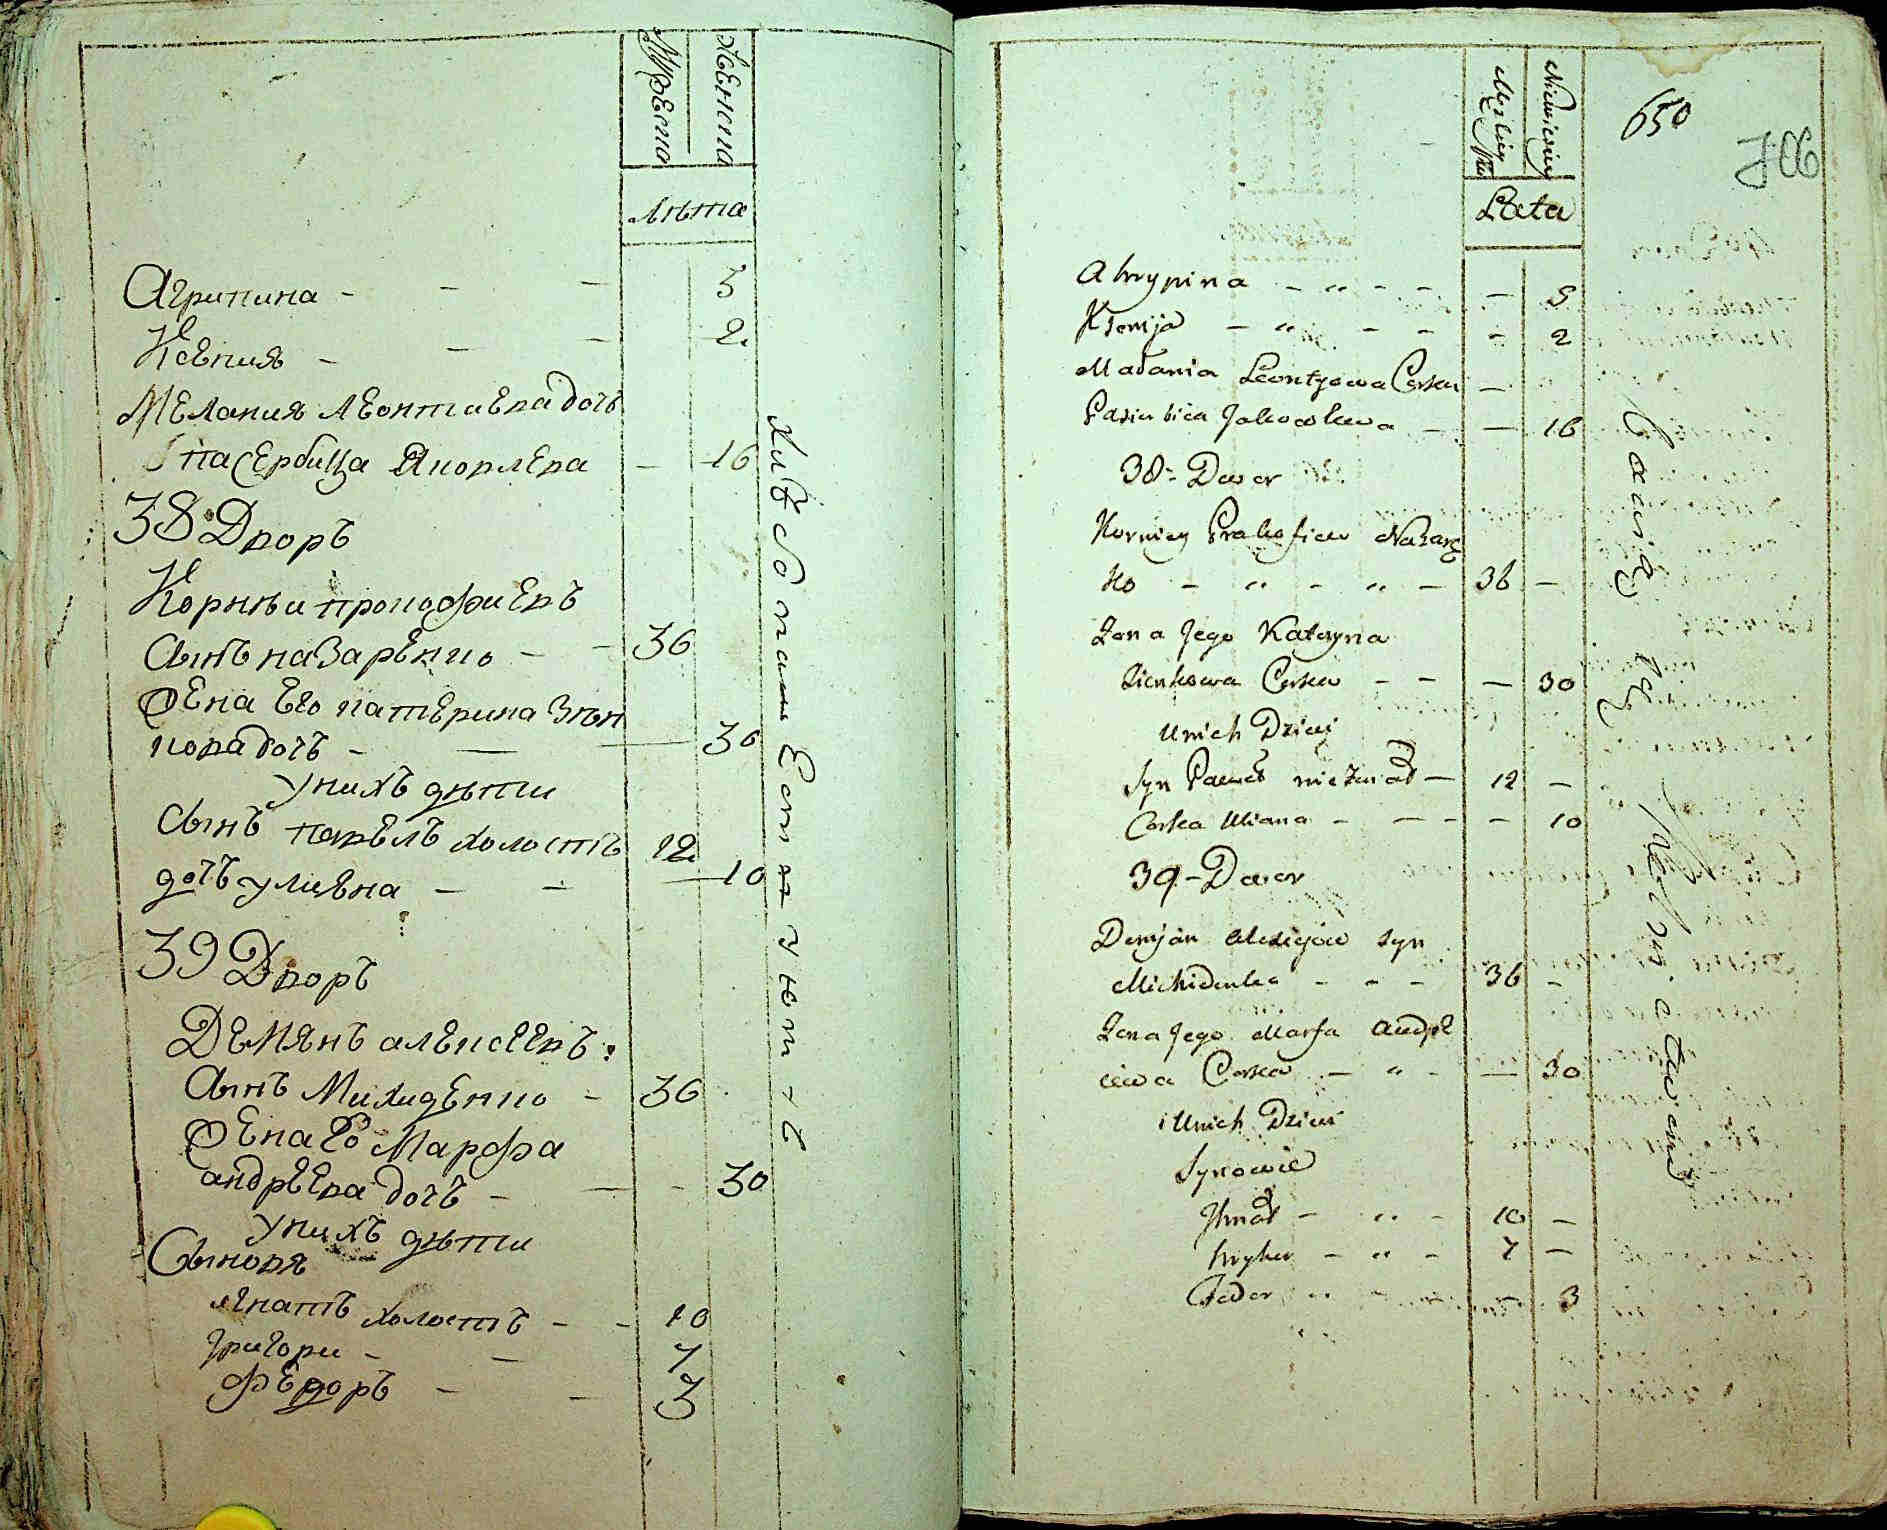 Мужеска
Женска
лѣта
Агрипина - - - 3
Ксения - - - 2
Мелания леонтиева дочь
пасербица Яковлева - 16
38 Дворъ
Корнѣи прокофиевъ
Сынъ назаренко - - 36
жена Его катерина Зѣн
кова дочь - - - 30
У нихъ дѣти
Сынъ павелъ холостъ 12
дочь улиена - - - 10
39 Дворъ
Демянъ алексеевъ
Сынъ Михиденко - 36
жена Его Марфа
андреева дочь - - - 30
У нихъ дѣти
Сыновя
игнатъ холостъ - - 10
григори - - 7
федоръ - - 3
650
Lata
Ahrypina - „ - - - 5
Ksenija - „ - - - 2
Małania Leontyowa Corka -
Pasierbica Jakowlewa - - 16
38 - Dwor
Korniey Prakofiew Nazaren
ko - „ - „ - 36 -
Zona Jego Kateryna
Zienkowa Corka - - - 30
U nich Dzieci
Syn Paweł nieżonat - 12 -
Corka Uliana - - - - 10
39 - Dwor
Demjan Alexiejow syn
Michidenko - - - 36 -
Zona Jego Marfa Andre
iewa Corka - „ - - 30
i U nich Dzieci
Synowie
Ihnat - „ - 10 -
hryhor - „ - 7 -
Fedor „ - - 3